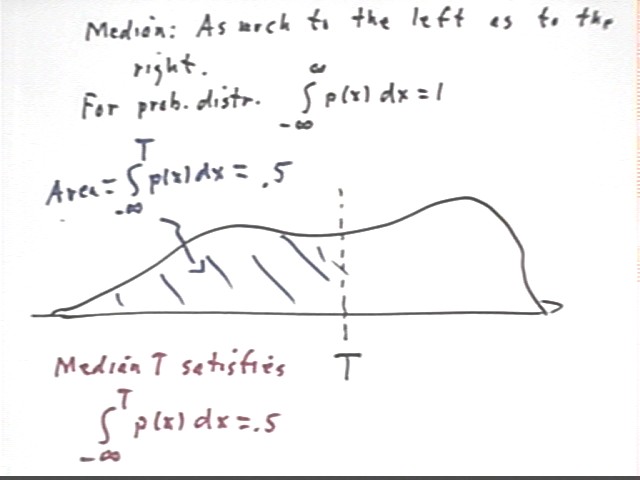 Median: As much to the left as to the
right.
For prob. distr. ∫_{-∞}^{∞} p(x) dx = 1
Area = ∫_{-∞}^{T} p(x) dx = .5
T
Median T satisfies
∫_{-∞}^{T} p(x) dx = .5